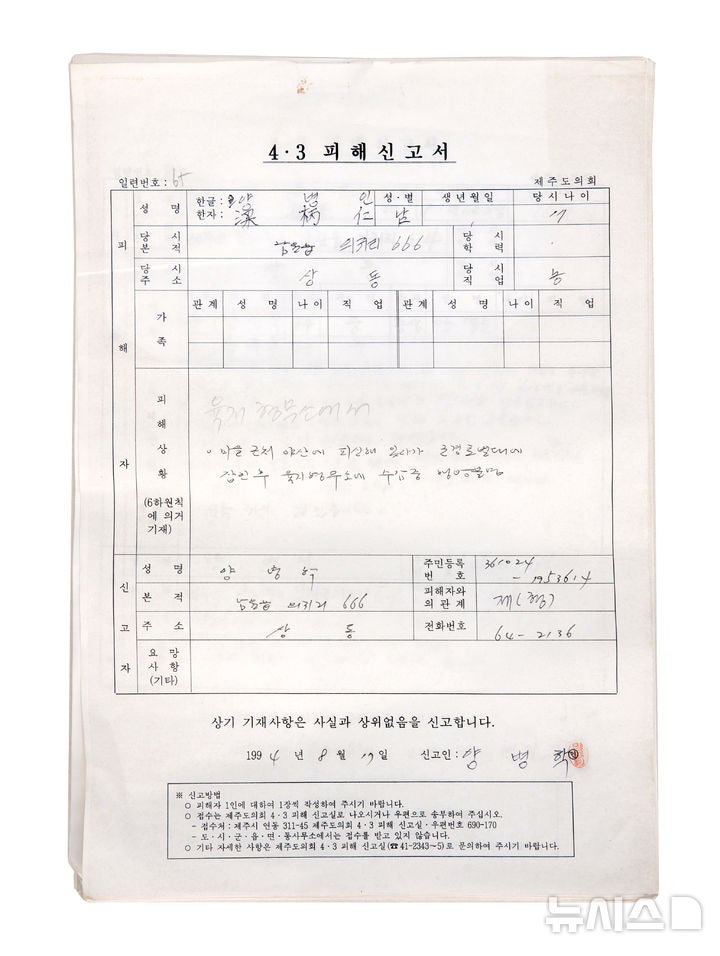 4·3 피해신고서
일련번호: 65 제주도의회
성 명 한글: 양 병 인 성·별 생년월일 당시나이
한자: 梁 柄 仁 남 17
당시본적 남원읍 의귀리 666 당시학력
당시주소 상 동 당시직업 농
피해자
가족
관계 성 명 나이 직 업 관계 성 명 나이 직 업
피해상황
(6하원칙에 의거 기재)
육지 형무소에서
마을 근처 야산에 피신해 있다가 군경토벌대에
잡힌 후 육지형무소에 수감중 행방불명
신고자
성 명 양 병 학 주민등록번호
본 적 남원읍 의귀리 666 피해자와의 관계 제(형)
주 소 상 동 전화번호 64-2136
요망사항(기타)
상기 기재사항은 사실과 상위없음을 신고합니다.
1994 년 8 월 17일 신고인: 양 병 학 ㊞
※ 신고방법
○ 피해자 1인에 대하여 1장씩 작성하여 주시기 바랍니다.
○ 접수는 제주도의회 4·3 피해 신고실로 나오시거나 우편으로 송부하여 주십시오.
- 접수처: 제주시 연동 311-45 제주도의회 4·3 피해 신고실·우편번호 690-170
- 도·시·군·읍·면·동사무소에서는 접수를 받고 있지 않습니다.
○ 기타 자세한 사항은 제주도의회 4·3 피해 신고실(☎41-2343~5)로 문의하여 주시기 바랍니다.
뉴시스